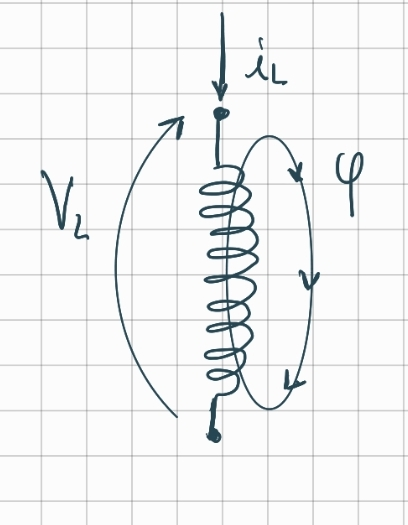 i_L
V_L
φ